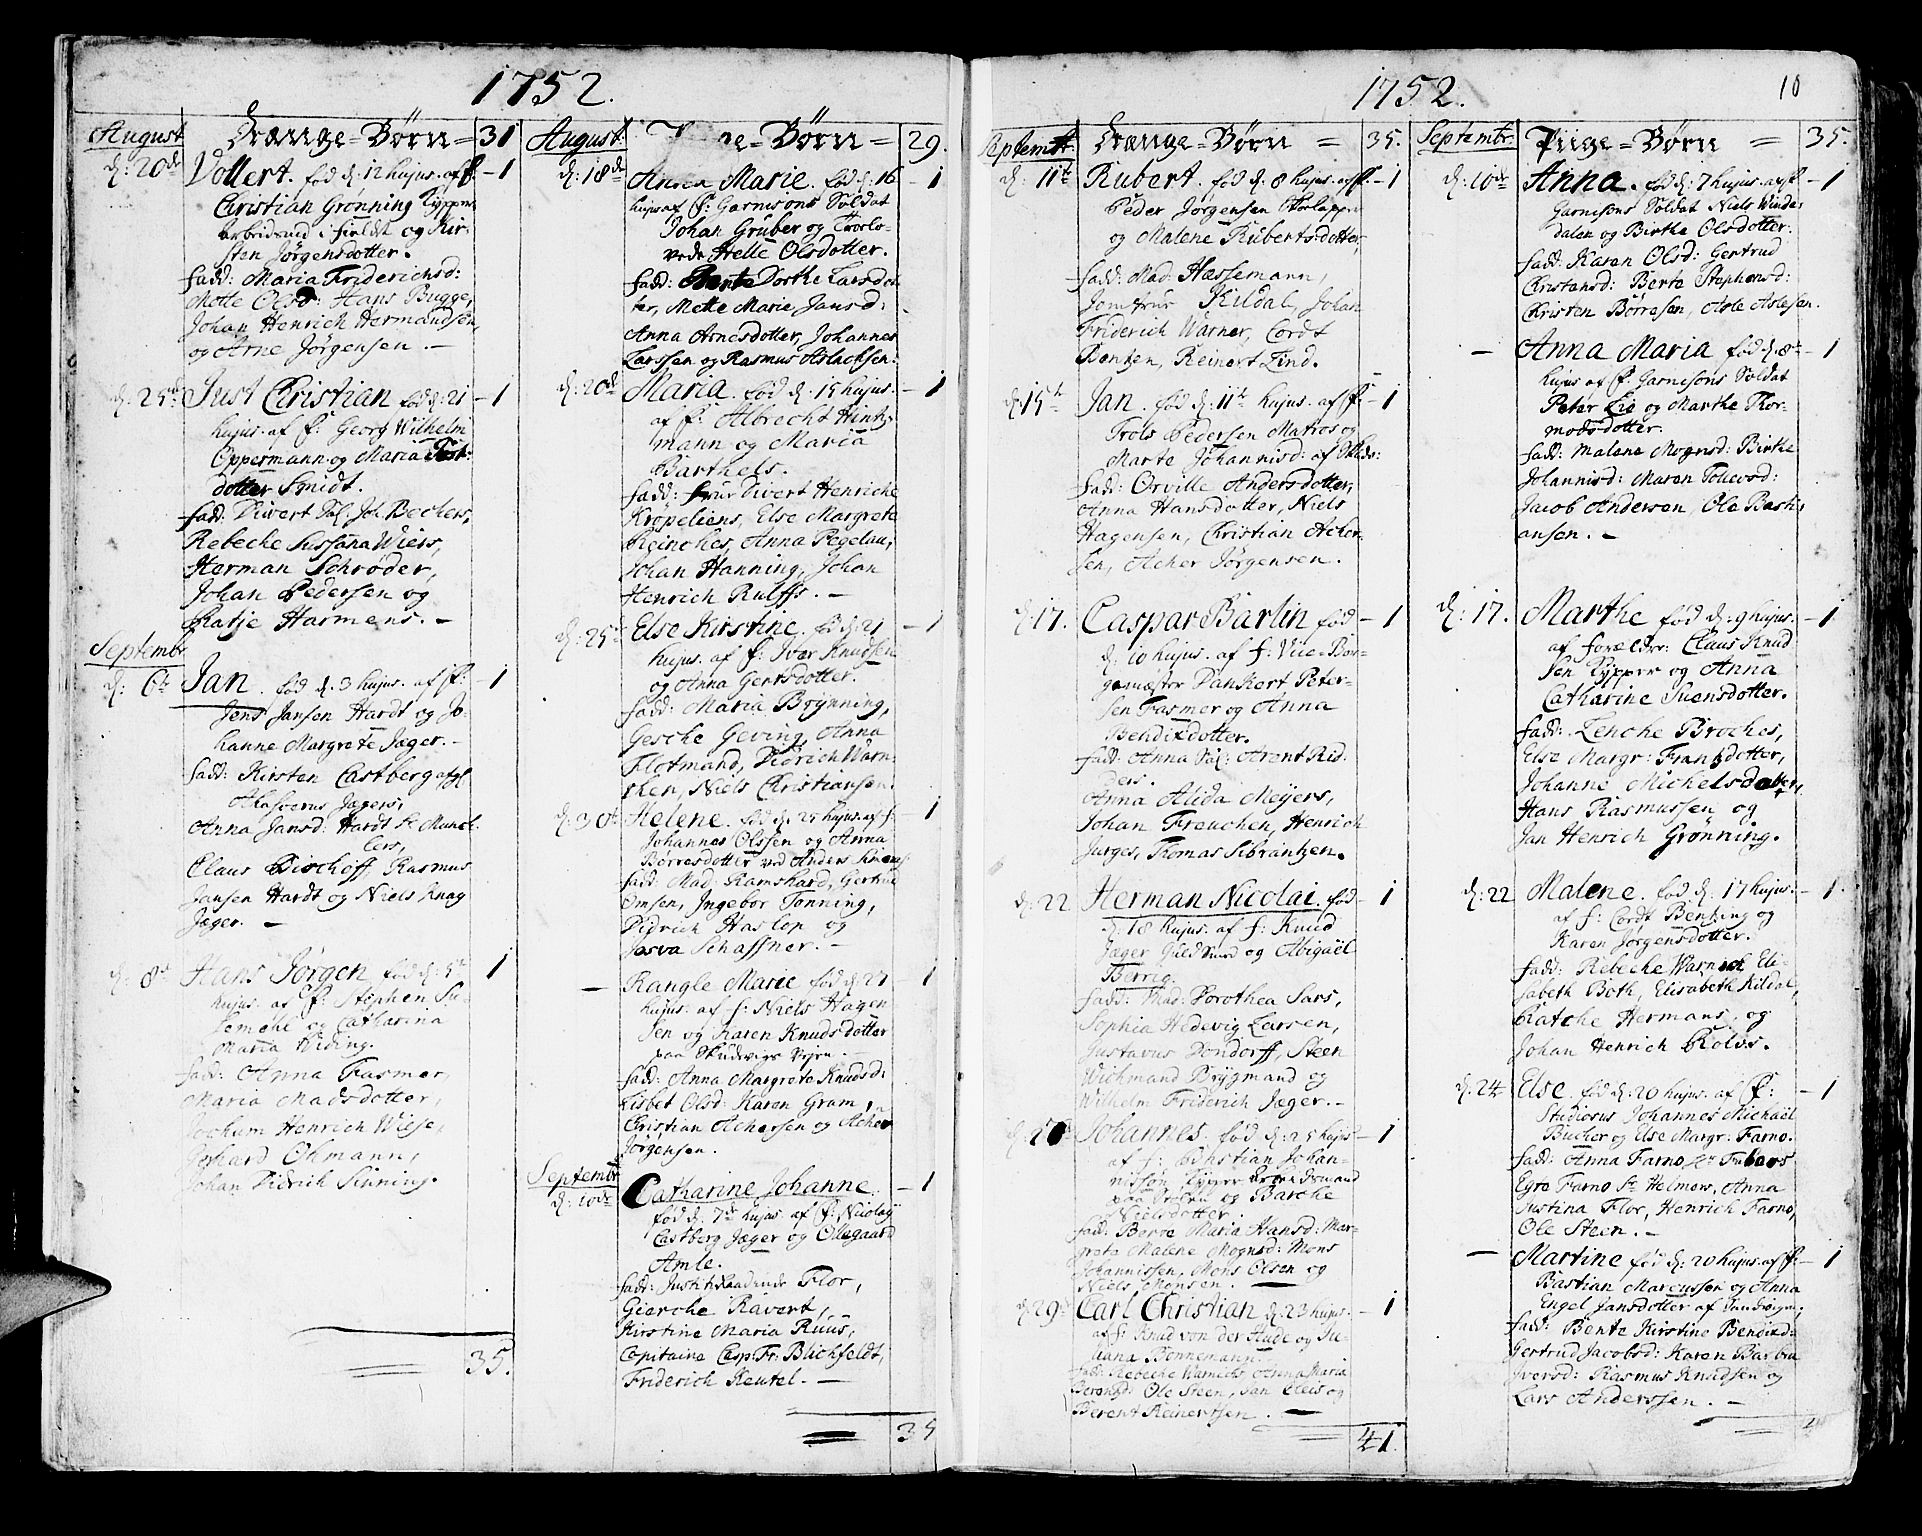 1752.
August Drænge-Børn = 31
d: 20de Vollert. fød d: 12 hujus. af f: 1
Christian Grønning Kypper
arbeidsmd i fieldt og Kir-
sten Jørgensdotter.
fadd: Maria Friderichsd:
Mette Olsd: Hans Bugge,
Johan Henrich Hermandsen,
og Arne Jørgensen. —
d: 25de Just Christian fød d: 21 1
hujus. af f: Georg Wilhelm
Oppermann og Maria
dotter Smidt.
fadd: Divert Sal: Joh. Bechers,
Rebecke Sussana Wiers,
Herman Schrøder,
Johan Pedersen og
Katje Harmens. —
Septembr
d: 6te Jan. fød d: 3 hujus. af f: 1
Jens Jansen Hardt og Jo-
hanne Margrete Jæger. —
fadd: Kirsten Castberg
Ahasverus Jægers,
Anna Jansd: Hardt Sr Munch-
ers,
Claus Bischoff, Rasmus
Jansen Hardt og Niels Knag
Jæger. —
d: 8de Hans Jørgen fød d: 5te 1
hujus. af f: Stephen Su-
og Catharina
Maria Widing.
fadd: Anna Fasmer,
Maria Madsdotter,
Jochum Henrich Wiese,
Gerhard Ohmann,
Johan Didrich Sinning.
35.
August. Piige-Børn = 29.
d: 18de Anna Marie. fød d: 16 1
hujus af f: Garnisons Soldat
Johan Gruber og Trolo-
vede Helle Olsdotter.
fadd: Bente Dorthe Larsdot-
ter, Mette Marie Jansd:
Anna Arnesdotter, Johannes
Larssen og Rasmus Aslachsen.
d: 20de Maria. fød d: 15 hujus. 1
af f: Albrecht Hintz-
mann og Maria
Barthels.
fadd: frue Divert Henriche
Krøpeliens, Else Margrete
Reinches, Anna Pegelau,
Johan Hanning, Johan
Henrich Rulffs. —
d: 25de Else Kirstine. fød d: 21 1
hujus. af f: Iver Knudsen
og Anna Gertsdotter.
fadd: Maria Brynning,
Gesche Geving, Anna
Flotmand, Didrich Warn-
cken, Niels Christiansen.
d: 30te Helene. fød d: 25 hujus. af f: 1
Johannes Olssen og Anna
Børresdotter ved Anders
fadd: Mad: Ramshard, Gertrud
Omsen, Ingebor Tønning,
Didrich Haslop og
Josva Schaffner. —
— Rangle Marie fød d: 27 1
hujus. af f: Niels Hagen-
sen og Karen Knudsdotter
paa Skudvigs Vejen. —
fadd: Anna Margrete Knudsd:
Lisbet Olsd: Karen Gram,
Christian Achersen og Acher
Jørgensen.
Septembr
d: 10de Catharine Johanne 1
fød d: 7de hujus. af f: Nicolaij
Castberg Jæger og Ollegaard
Amle.
fadd: Justitzraadinde Flor,
Gierche Ravert,
Kirstine Maria Ruus,
Capitaine Casp: Fr: Blichfeldt,
Friderich Reutel. —
35
1752. 10
Septembr. Drænge-Børn = 35.
d: 11te Rubert. fød d: 8 hujus. af f: 1
Peder Jørgensen
og Malene Rubertsdotter,
fadd: Mad: Hassemann,
Jomfrue Kildal, Johan
Friderich Warner, Cordt
Bonken, Reinert Lind.
d: 15te Jan. fød d: 11te hujus. af f: 1
Trols Pedersen Matros og
Marte Johannisd: af
fadd: Orville Andersdotter,
Anna Hansdotter, Niels
Hagensen, Christian Acher-
sen, Acher Jørgensen.
d: 17. Caspar Barlin fød 1
d: 10 hujus. af f: Viie-Bor-
gemæster Dankert Peter-
sen Fasmer og Anna
Bendixdotter.
fadd: Anna Sal: Arent Rid-
ders.
Anna Alida Meyers,
Johan Freuchen, Henrich
Jurges, Thomas Sibrantzen.
d: 22 Herman Nicolai. fød 1
d: 18 hujus. af f: Knud
Jæger Guldsmed og Abigaël
Berrig.
fadd: Mad: Dorothea Sars,
Sophia Hedevig Larsen,
Gustavus Dondorff, Steen
Wichmand Brygmand og
Wilhelm Friderich Jæger. —
Johannes. fød d: 25 hujus 1
af f: Christian Johan-
nissøn Kypper
og Barche
Nielsdotter.
fadd: Børve Maria Hansd: Mar-
grete Malene Mognsd: Mons
Johannissen, Mons Olsen og
Niels Monsen. —
d: 29 Carl Christian d: 23 hujus. 1
af f: Knud von der Hude og Ju-
liana Bonnemann.
fadd: Rebecke Warnecks, Anna Maria
Berentsd: Ole Steen, Jan Kleis og
Berent Reinertsen. —
41.
Septembr. Piige-Børn = 35.
d: 10de Anna. fød d: 7 hujus. af f: 1
Garnisons Soldat Niels Winde-
dalen og Birthe Olsdotter.
fadd: Karen Olsd: Gertrud
Christansd: Berte Stephensd:
Christen Børresen, Asle Aslesen.
— Anna Maria fød d: 8de 1
hujus af f: Garnisons Soldat
Peter Lie og Marthe Thor-
modsdotter.
fadd: Malene Mognsd: Birthe
Johannisd: Maren Tollevsd:
Jacob Andersen, Ole Basti-
ansen. —
d: 17. Marthe fød d: 9 hujus. 1
af forælder: Claus Knud-
sen Kypper og Anna
Catharine Suensdotter.
fadd: Lenche Broches,
Else Margr: Frantzdotter,
Johanne Michelsdotter,
Hans Rasmussen og
Jan Henrich Grønning.
d: 22 Malene. fød d: 17 hujus. 1
af f: Cordt Benking og
Karen Jørgensdotter.
fadd: Rebecke Warneck Eli-
sabeth Both, Elisabeth Kildal,
Katche Hermans, og
Johan Henrich Rolvs.
d: 24 Else fød d: 20 hujus. af f: 1
Studiosus Johannes Michaël
Bucher og Else Margr: Farno.
fadd: Anna Farno Sr
Egre Farno Sr Helmers, Anna
Justina Flor, Henrich Farno,
Ole Steen. —
— Martine fød d: 20 hujus. af f: 1
Bastian Marcussen og Anna
Engel Jansdotter af Sandvigen;
fadd: Bente Kirstine Bendixd:
Gertrud Jacobsd: Karen Barbra
Iversd: Rasmus Knudsen og
Lars Anderssen. —